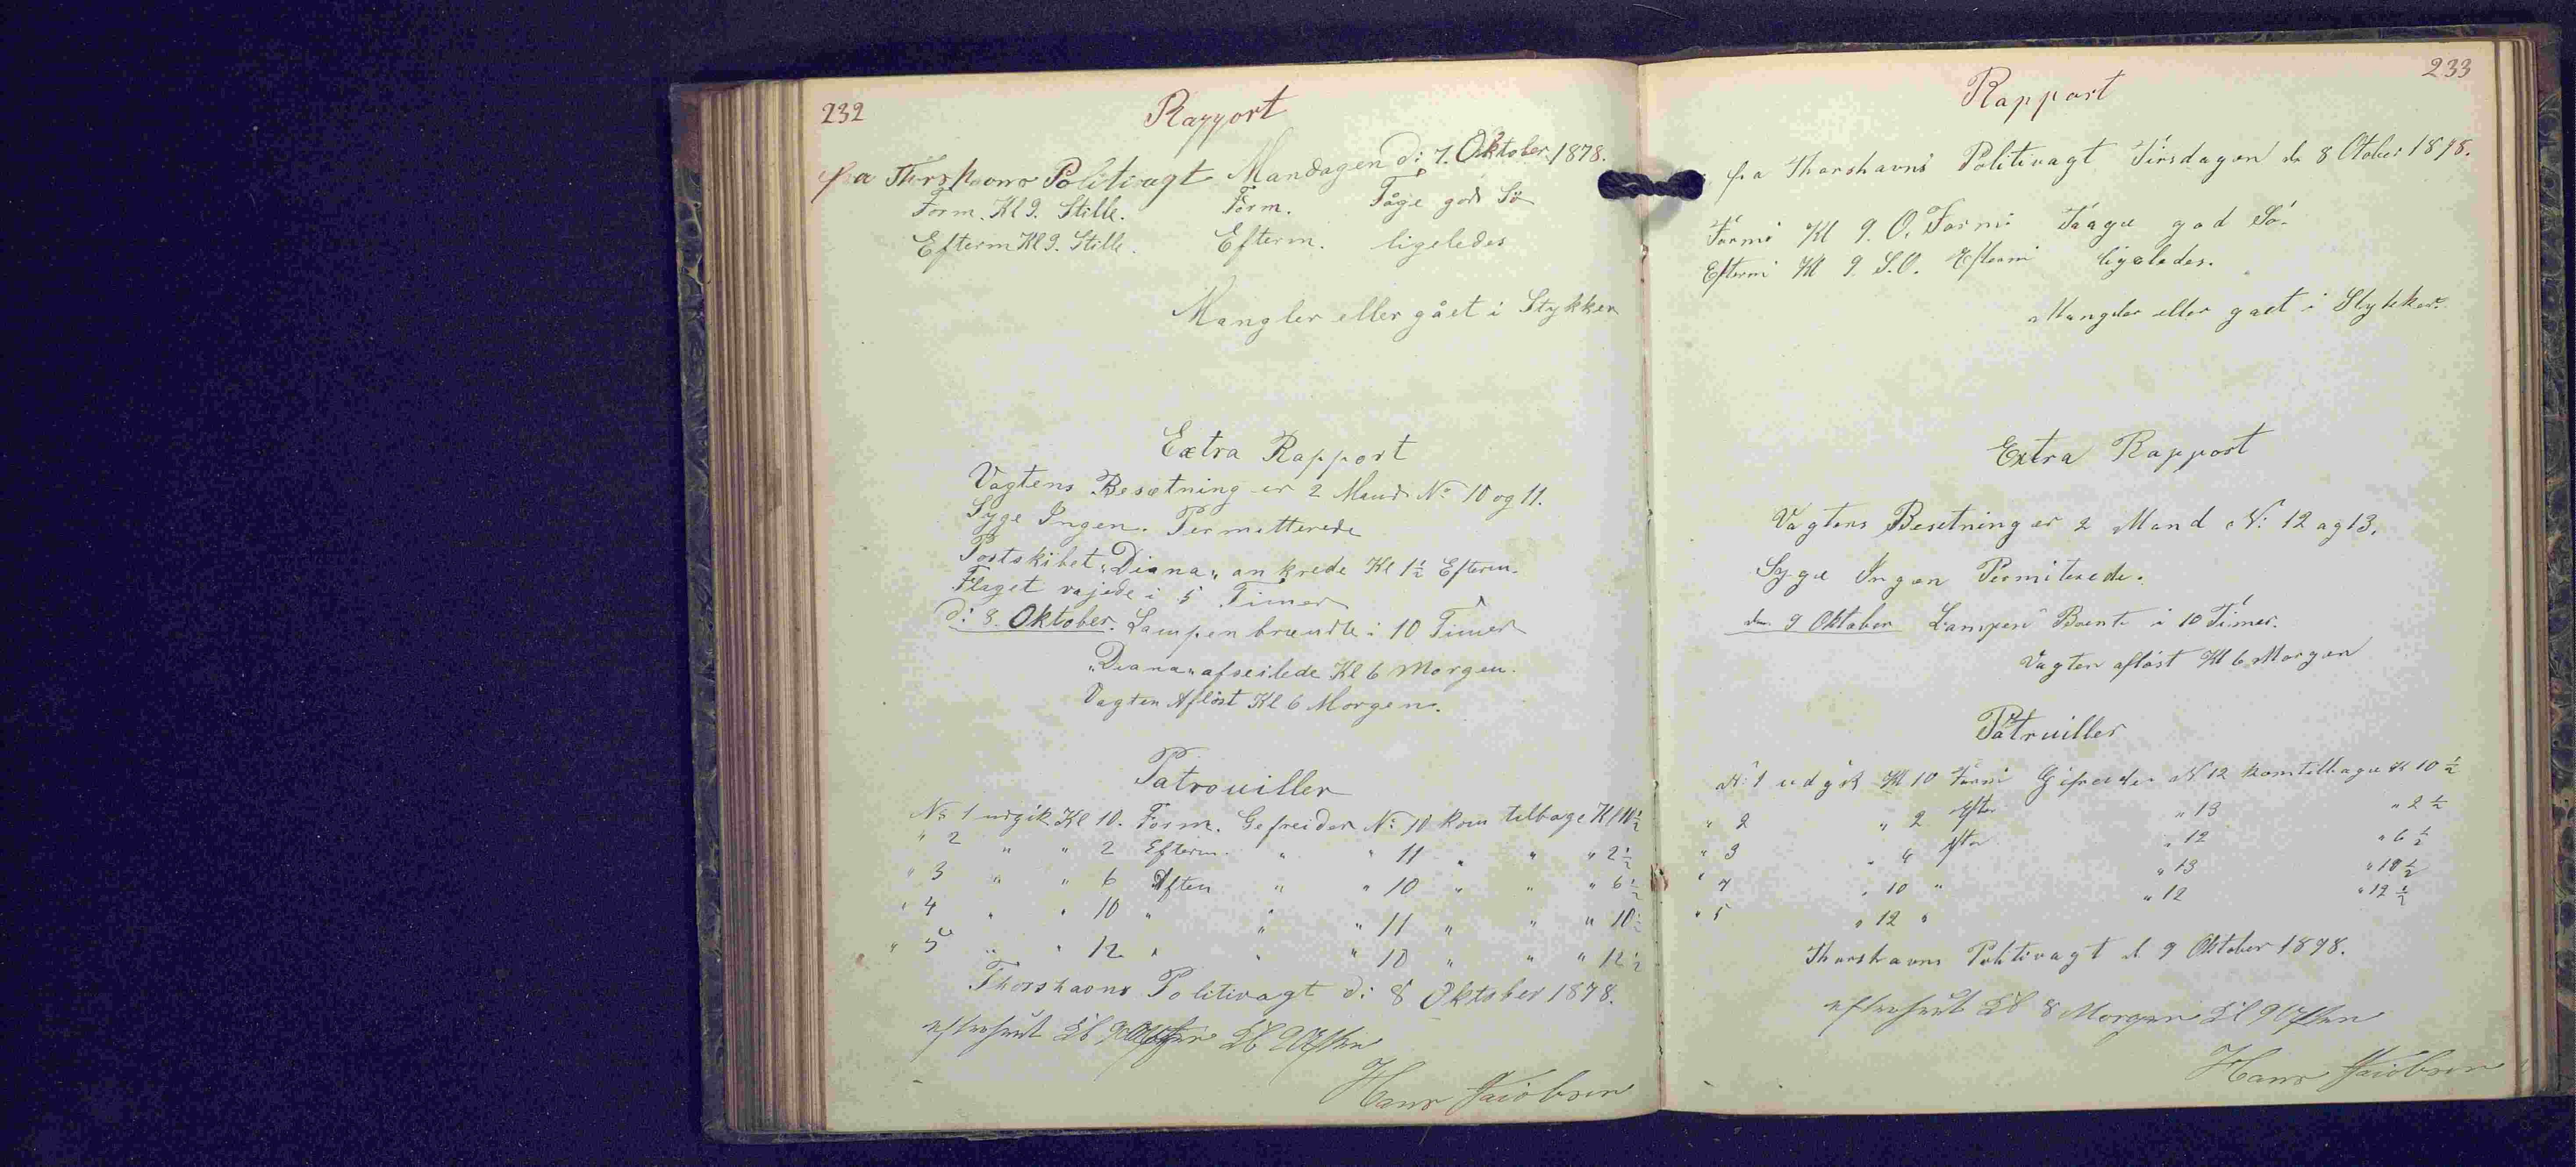 232
Rapport
fra Thorshavns Politivagt Mandagen d: 7. Oktober 1878.
Form. Kl 9. Stille. Form. Tåge god Sö
Efterm Kl 9. Stille. Efterm. ligeledes
Mangler eller gået i Stykker
Extra Rapport
Vagtens Besætning er 2 Mand No 10 og 11.
Syge Ingen. Permitterede
Postskibet "Diana" ankrede Kl 1½ Efterm.
Flaget vajede i 5 Timer
d: 8. Oktober. Lampen brændte i 10 Timer
"Diana" afseilede Kl 6 Morgen.
Vagten Aflöst Kl 6 Morgen.
Patrouiller
No 1 udgik Kl 10. Form. Gefreider No 10 kom tilbage Kl 10½
" 2 " " 2 Efterm. " " 11 " " " 2½
" 3 " " 6 Aften " " 10 " " " 6½
" 4 " " 10 " " " 11 " " " 10½
" 5 " " 12 " " " 10 " " " 12½
Thorshavns Politivagt d: 8 Oktober 1878.
efterseet Kl 9 Kl 9 Aften
Hans Jacobsen
233
Rapport
fra Thorshavns Politivagt Tirsdagen d. 8 Otober 1878.
Formi Kl 9. O. Formi Taage god Sö.
Eftermi Kl 9 S.O. Eftermi ligeledes.
Mangler eller gaet i Stykker.
Extra Rapport
Vagtens Besetning er 2 Mand N: 12 og 13.
Syge Ingen Permiterede.
den 9 Oktober Lampen Brente i 10 Timer.
Vagten aflöst Kl 6 Morgen
Patruiller
N: 1 udgik Kl 10 Formi Gefreider N 12 kom tilbage Kl 10½
" 2 " 2 Efter " 13 " 2½
" 3 " 6 After " 12 " 6½
" 4 " 10 " " 13 " 10½
" 5 " 12 " " 12 " 12½
Thorshavns Politivagt d. 9 Oktober 1878.
efterseet Kl 8 Morgen Kl 9 Aften
Hans Jacobsen